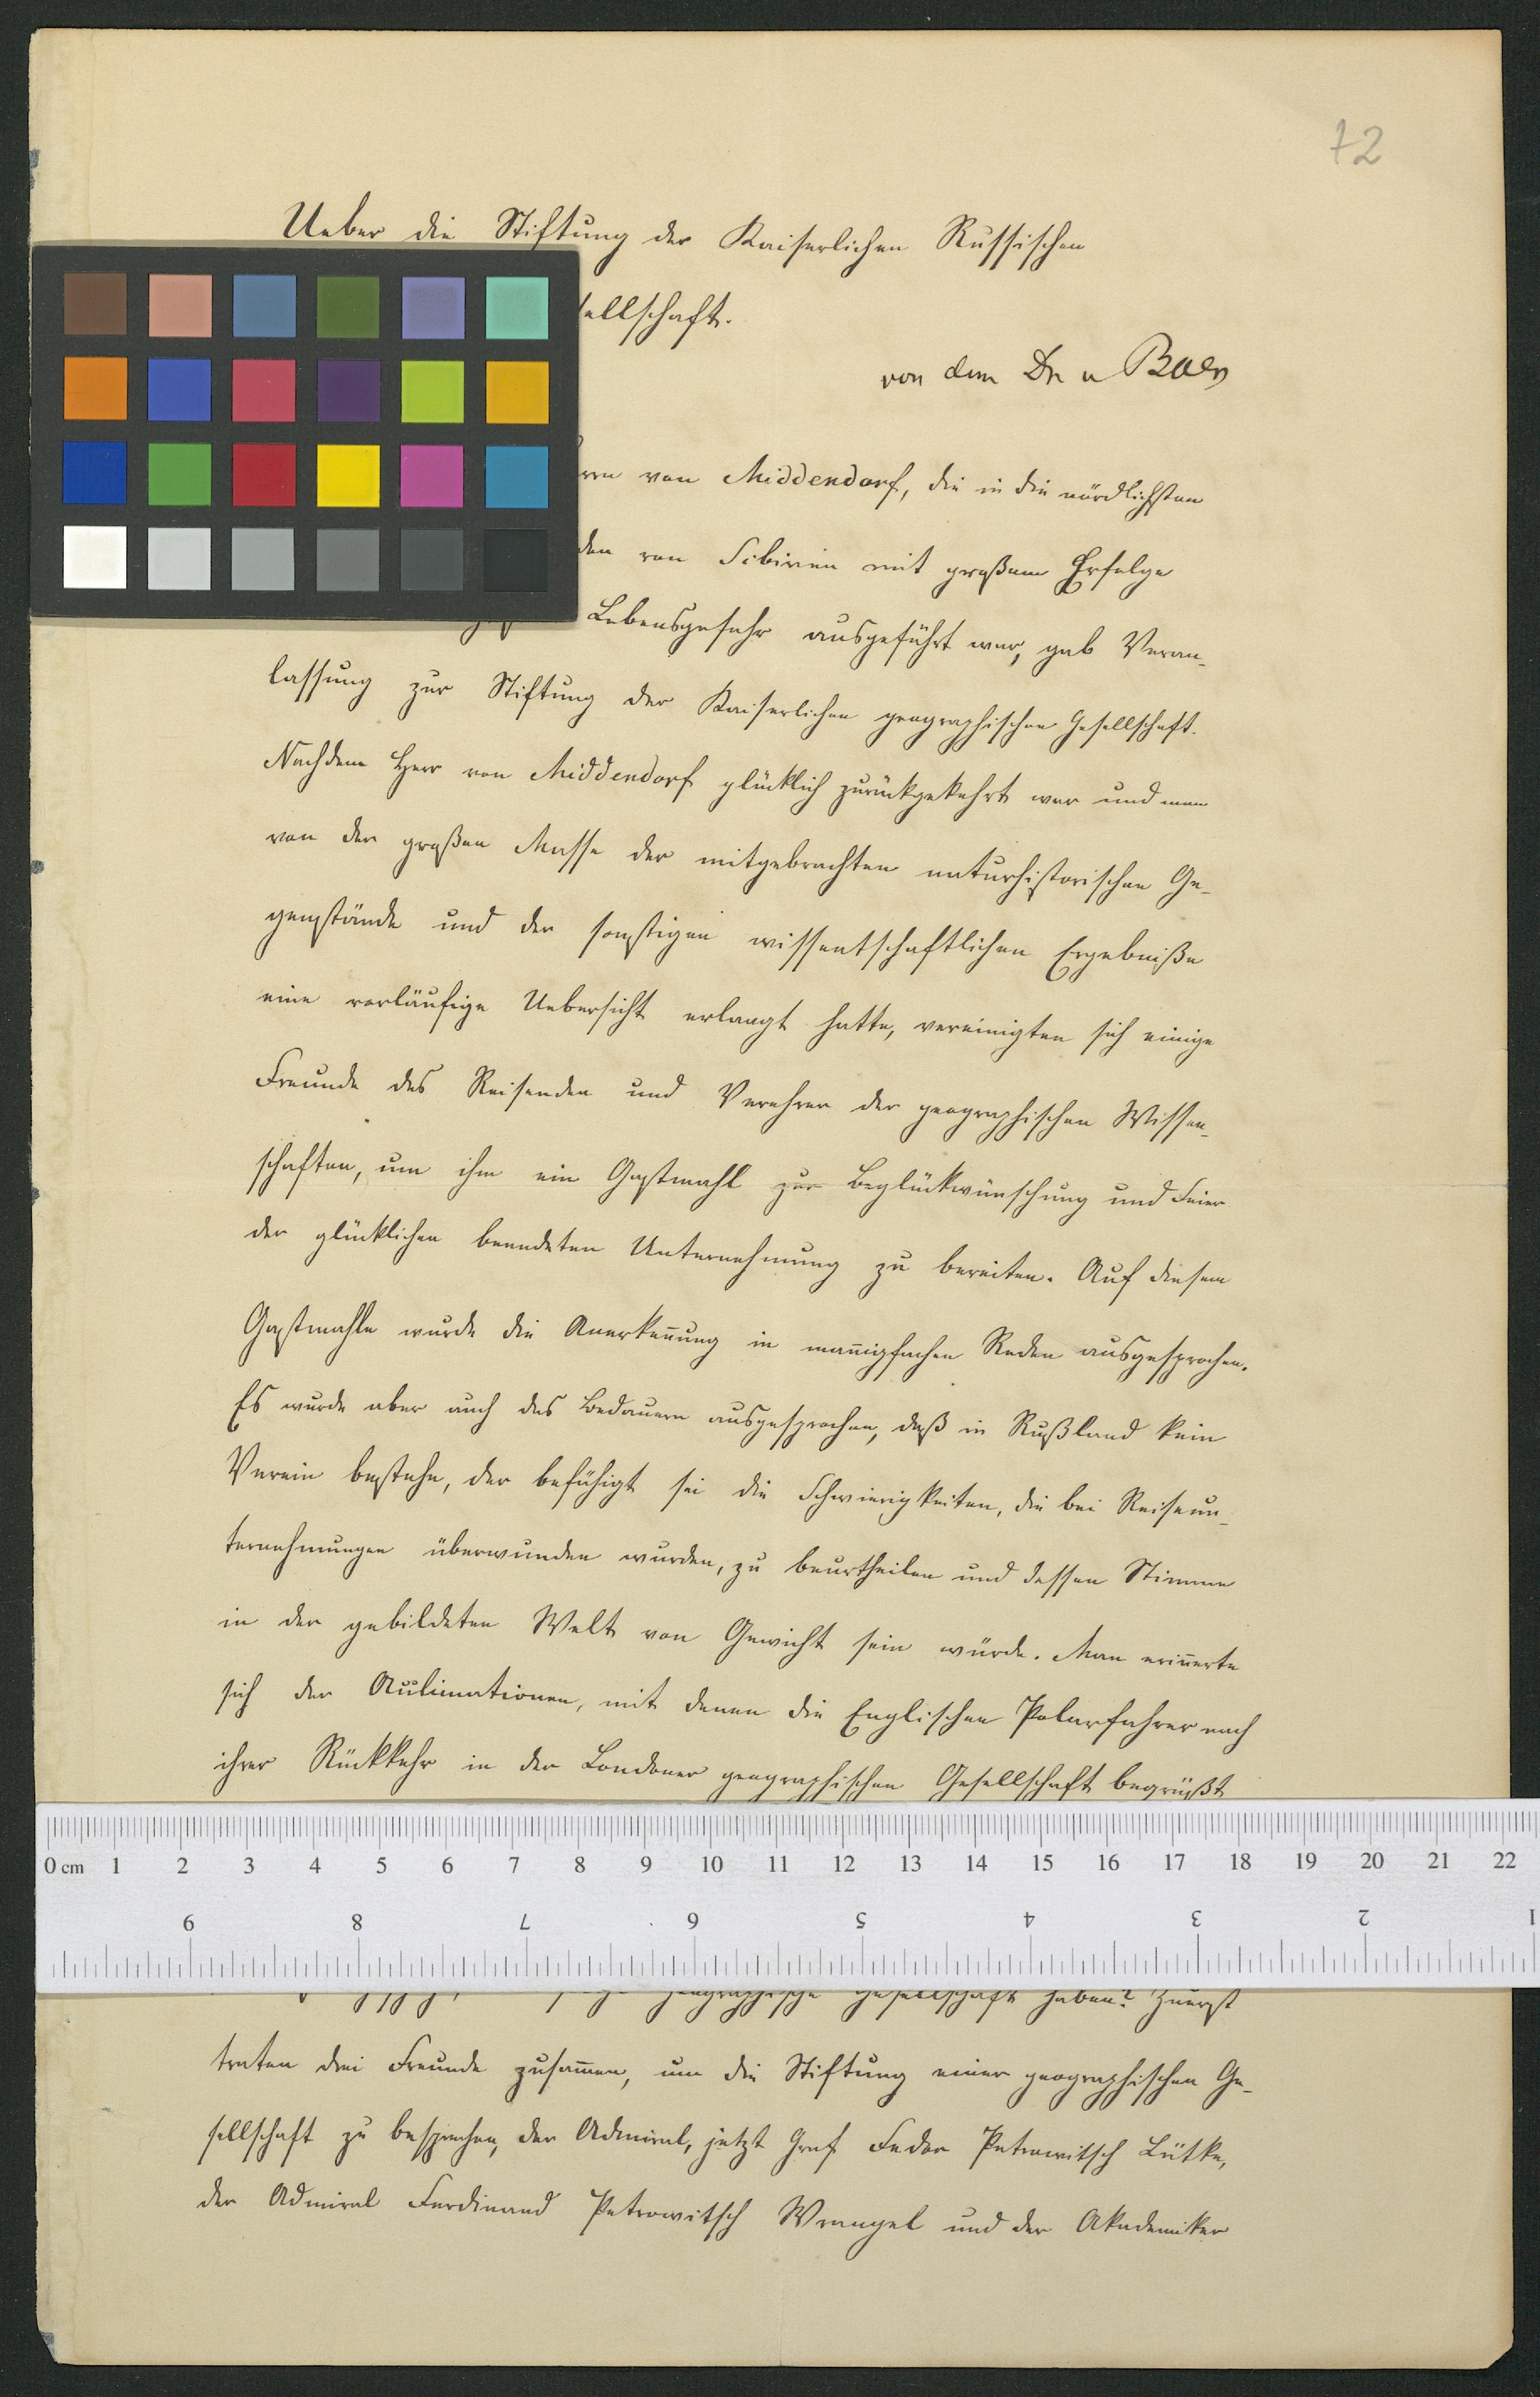 72
Ueber die Stiftung der Kaiserlichen Russischen
sellschaft.
von dem Dr v Baer
von Middendorf, die in die nördlichsten
von Sibirien mit großem Erfolge
Lebensgefahr ausgeführt war, gab Veran-
lassung zur Stiftung der Kaiserlichen geographischen Gesellschaft.
Nachdem Herr von Middendorf glücklich zurückgekehrt war und man
von der großen Masse der mitgebrachten naturhistorischen Ge-
genstände und der sonstigen wissentschaftlichen Ergebniße
eine vorläufige Uebersicht erlangt hatte, vereinigten sich einige
Freunde des Reisenden und Verehrer der geographischen Wissen-
schaften, um ihm ein Gastmahl zur Beglückwünschung und Feier
der glücklichen beendeten Unternehmung zu bereiten. Auf diesem
Gastmahle wurde die Anerken̄ung in man̄igfachen Reden ausgesprochen.
Es wurde aber auch das Bedauern ausgesprochen, daß in Rußland kein
Verein bestehe, der befähigt sei die Schwierigkeiten, die bei Reiseun-
ternehmungen überwunden wurden, zu beurtheilen und dessen Stimme
in der gebildeten Welt von Gewicht sein würde. Man erin̄erte
sich der, mit denen die Englischen Polarfahrer nach
ihrer Rückkehr in der Londoner geographischen Gesellschaft begrüßt
0 cm 1 2 3 4 5 6 7 8 9 10 11 12 13 14 15 16 17 18 19 20 21 22
9 8 7 6 5 4 3 2 1
geographische Gesellschaft haben? Zuerst
traten drei Freunde zusam̄en, um die Stiftung einer geographischen Ge-
sellschaft zu besprechen, der Admiral, jetzt Graf Fedor Petrowitsch Lütke,
der Admiral Ferdinand Petrowitsch Wrangel und der Akademiker